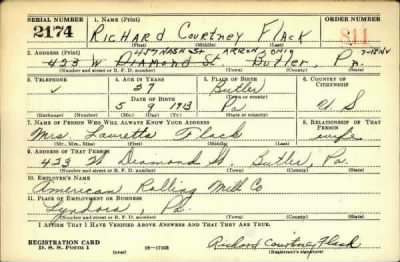 SERIAL NUMBER 1. NAME (Print) ORDER NUMBER
2174 RICHARD COURTNEY FLACK 811
(First) (Middle) (Last)
2. ADDRESS (Print) 457 NASH ST AKRON OHIO
423 W DIAMOND ST BUTLER, PA.
(Number and street or R. F. D. number) (Town) (County) (State)
3. TELEPHONE 4. AGE IN YEARS 5. PLACE OF BIRTH 6. COUNTRY OF CITIZENSHIP
27 Butler
DATE OF BIRTH (Town or county)
5 9 1913 Pa U S
(Exchange) (Number) (Mo.) (Day) (Yr.) (State or country)
7. NAME OF PERSON WHO WILL ALWAYS KNOW YOUR ADDRESS 8. RELATIONSHIP OF THAT PERSON
Mrs. Lauretta Flack wife
(Mr., Mrs., Miss) (First) (Middle) (Last)
9. ADDRESS OF THAT PERSON
423 W Diamond St Butler, Pa.
(Number and street or R. F. D. number) (Town) (County) (State)
10. EMPLOYER'S NAME
American Rolling Mill Co
11. PLACE OF EMPLOYMENT OR BUSINESS
Lyndora, Pa.
(Number and street or R. F. D. number) (Town) (County) (State)
I AFFIRM THAT I HAVE VERIFIED ABOVE ANSWERS AND THAT THEY ARE TRUE.
REGISTRATION CARD
D. S. S. Form 1 (over) 16—17105 Richard Courtney Flack
(Registrant's signature)